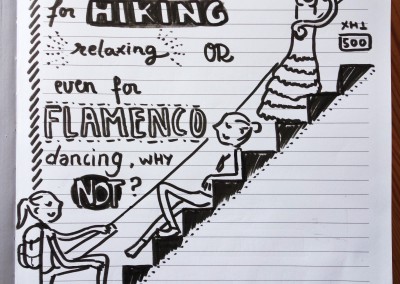 for HIKING
relaxing OR
even for
FLAMENCO
dancing, WHY
NOT?
THX
500